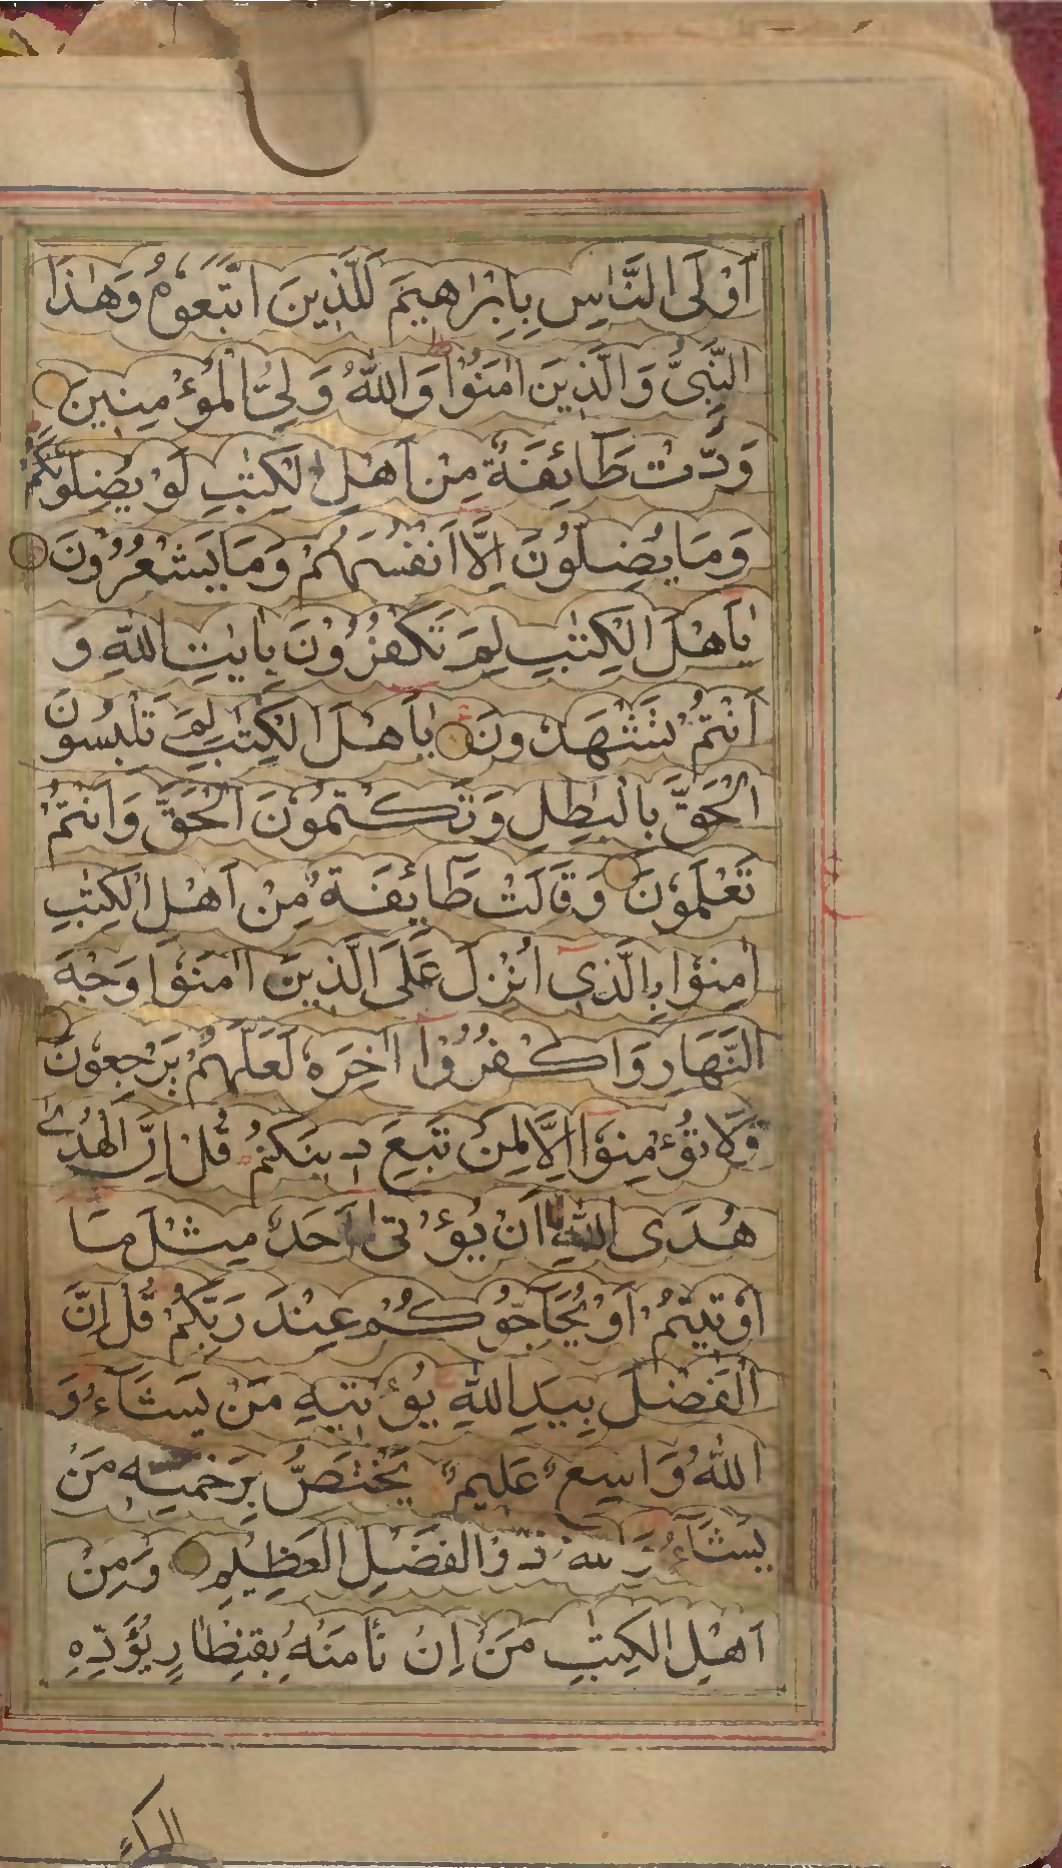 اَوْلَى النَّاسِ بِاِبْرٰهِيْمَ لَلَّذِيْنَ اتَّبَعُوْهُ وَهٰذَا
النَّبِىُّ وَالَّذِيْنَ اٰمَنُوْا وَاللّٰهُ وَلِىُّ الْمُؤْمِنِيْنَ
وَدَّتْ طَآئِفَةٌ مِنْ اَهْلِ الْكِتٰبِ لَوْ يُضِلُّوْنَكُمْ
وَمَا يُضِلُّوْنَ اِلَّا اَنْفُسَهُمْ وَمَا يَشْعُرُوْنَ
يٰاَهْلَ الْكِتٰبِ لِمَ تَكْفُرُوْنَ بِاٰيٰتِ اللّٰهِ وَ
اَنْتُمْ تَشْهَدُوْنَ يٰاَهْلَ الْكِتٰبِ لِمَ تَلْبِسُوْنَ
الْحَقَّ بِالْبٰطِلِ وَتَكْتُمُوْنَ الْحَقَّ وَاَنْتُمْ
تَعْلَمُوْنَ وَقَالَتْ طَآئِفَةٌ مِنْ اَهْلِ الْكِتٰبِ
اٰمِنُوْا بِالَّذِى اُنْزِلَ عَلَى الَّذِيْنَ اٰمَنُوْا وَجْهَ
النَّهَارِ وَاكْفُرُوْا اٰخِرَهُ لَعَلَّهُمْ يَرْجِعُوْنَ
وَلَا تُؤْمِنُوْا اِلَّا لِمَنْ تَبِعَ دِيْنَكُمْ قُلْ اِنَّ الْهُدٰى
هُدَى اللّٰهِ اَنْ يُؤْتٰى اَحَدٌ مِثْلَ مَا
اُوْتِيْتُمْ اَوْ يُحَاجُّوْكُمْ عِنْدَ رَبِّكُمْ قُلْ اِنَّ
الْفَضْلَ بِيَدِ اللّٰهِ يُؤْتِيْهِ مَنْ يَشَآءُ وَ
اللّٰهُ وَاسِعٌ عَلِيْمٌ يَخْتَصُّ بِرَحْمَتِهِ مَنْ
يَشَآءُ وَاللّٰهُ ذُوالْفَضْلِ الْعَظِيْمِ وَمِنْ
اَهْلِ الْكِتٰبِ مَنْ اِنْ تَأْمَنْهُ بِقِنْطَارٍ يُؤَدِّهِ